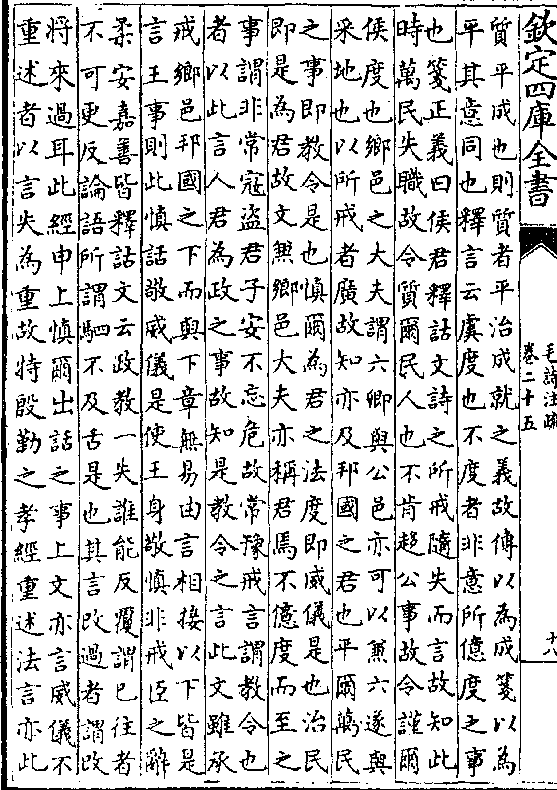 欽定四庫全書
毛詩注疏
卷二十五
十八
質平成也則質者平治成就之義故傳以為成箋以為
平其意同也釋言云虞度也不度者非意所億度之事
也箋正義曰侯君釋詁文詩之所戒隨失而言故知此
時萬民失職故令質爾民人也不肯趨公事故令謹爾
侯度也鄉邑之大夫謂六鄉與公邑亦可以兼六遂與
采地也以所戒者廣故知亦及邦國之君也平爾萬民
之事即教令是也慎爾為君之法度即威儀是也治民
即是為君故文無鄉邑大夫亦稱君焉不億度而至之
事謂非常寇盜君子安不忘危故常豫戒言謂教令也
者以此言人君為政之事故知是教令之言此文雖承
戒鄉邑邦國之下而與下章無易由言相接以下皆是
言王事則此慎話敬威儀是使王身敬慎非戒臣之辭
柔安嘉善皆釋詁文云政教一失誰能反覆謂已往者
不可更反論語所謂駟不及舌是也其言改過者謂改
將來過耳此經申上慎爾出話之事上文亦言威儀不
重述者以言失為重故特殷勤之孝經重述法言亦此